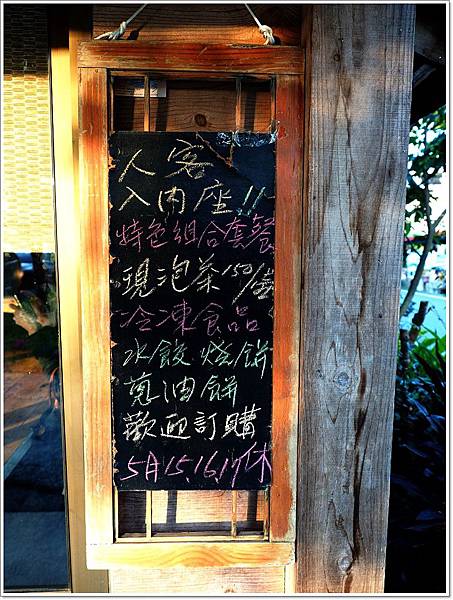 人客
入內座!!
特色組合套餐
現泡茶150/壺
冷凍食品
水餃 燒餅
蔥油餅
歡迎訂購
5月15.16.17休